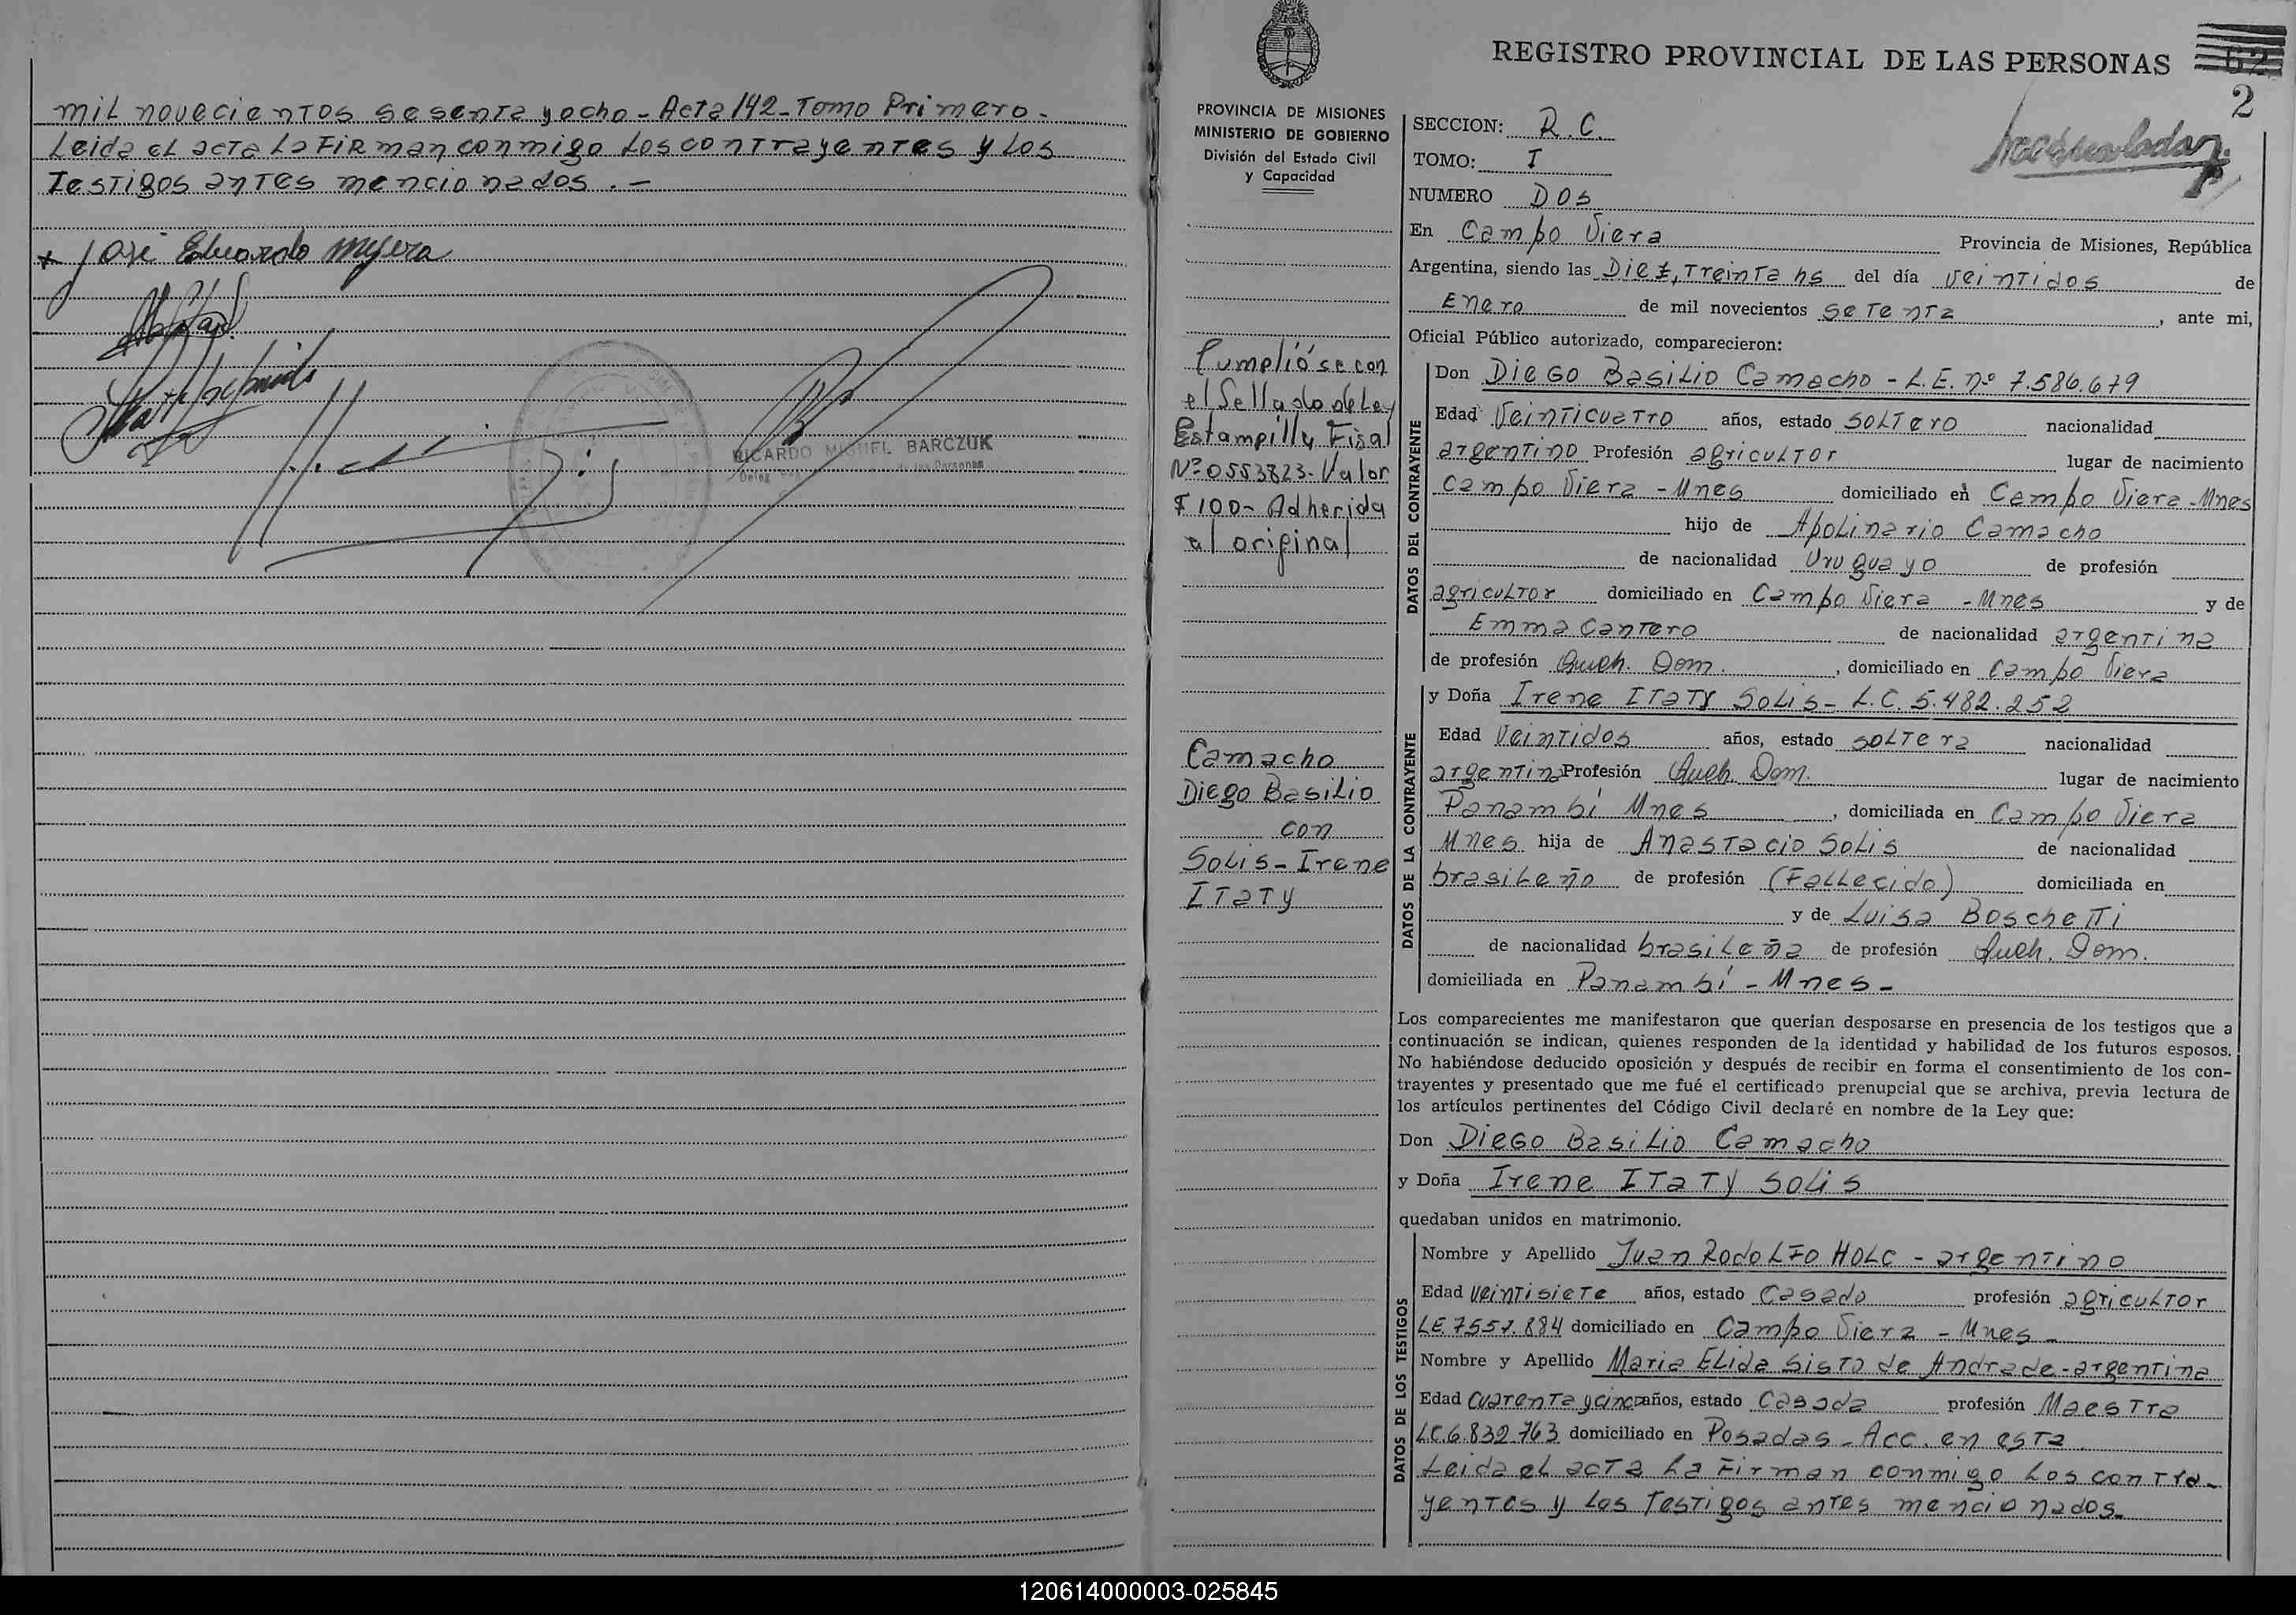 mil novecientos sesenta y ocho - Acta 142 - Tomo Primero -
Leida el acta la firman conmigo los contrayentes y los
testigos antes mencionados . -
RICARDO MIGUEL BARCZUK
de las Personas
REGISTRO PROVINCIAL DE LAS PERSONAS
62
2
PROVINCIA DE MISIONES
MINISTERIO DE GOBIERNO
División del Estado Civil
y Capacidad
Cumplióse con
el Sellado de Ley
Estampilla Fisal
Nº 0553823 - Valor
$ 100 - Adherida
al original
Camacho
Diego Basilio
con
Solis - Irene
Itaty
SECCION: R.C.
TOMO: I
NUMERO Dos
En Campo Viera Provincia de Misiones, República
Argentina, siendo las Diez, treinta hs del día veintidos de
Enero de mil novecientos setenta, ante mi,
Oficial Público autorizado, comparecieron:
DATOS DEL CONTRAYENTE
Don Diego Basilio Camacho - L.E. nº 7.586.679
Edad Veinticuatro años, estado soltero nacionalidad
argentino Profesión agricultor lugar de nacimiento
Campo Viera - Mnes domiciliado en Campo Viera - Mnes
hijo de Apolinario Camacho
de nacionalidad Uruguayo de profesión
agricultor domiciliado en Campo Viera - Mnes y de
Emma Cantero de nacionalidad argentina
de profesión Queh. Dom., domiciliado en Campo Viera
DATOS DE LA CONTRAYENTE
y Doña Irene Itaty Solis - L.C. 5.482.252
Edad Veintidos años, estado soltera nacionalidad
argentina Profesión Queh. Dom. lugar de nacimiento
Panambí Mnes, domiciliada en Campo Viera
Mnes hija de Anastacio Solis de nacionalidad
brasileño de profesión (Fallecido) domiciliada en
y de Luisa Boschetti
de nacionalidad brasileña de profesión Queh. Dom.
domiciliada en Panambí - Mnes -
Los comparecientes me manifestaron que querían desposarse en presencia de los testigos que a
continuación se indican, quienes responden de la identidad y habilidad de los futuros esposos.
No habiéndose deducido oposición y después de recibir en forma el consentimiento de los con-
trayentes y presentado que me fué el certificado prenupcial que se archiva, previa lectura de
los artículos pertinentes del Código Civil declaré en nombre de la Ley que:
Don Diego Basilio Camacho
y Doña Irene Itaty Solis
quedaban unidos en matrimonio.
DATOS DE LOS TESTIGOS
Nombre y Apellido Juan Rodolfo Holc - argentino
Edad veintisiete años, estado Casado profesión agricultor
LE. 7557.884 domiciliado en Campo Viera - Mnes -
Nombre y Apellido Maria Elida Sisto de Andrade - argentina
Edad cuarenta y cinco años, estado Casada profesión Maestra
LC. 6.832.763 domiciliado en Posadas - Acc. en esta
Leida el acta la firman conmigo los contra-
yentes y los testigos antes mencionados.
120614000003-025845